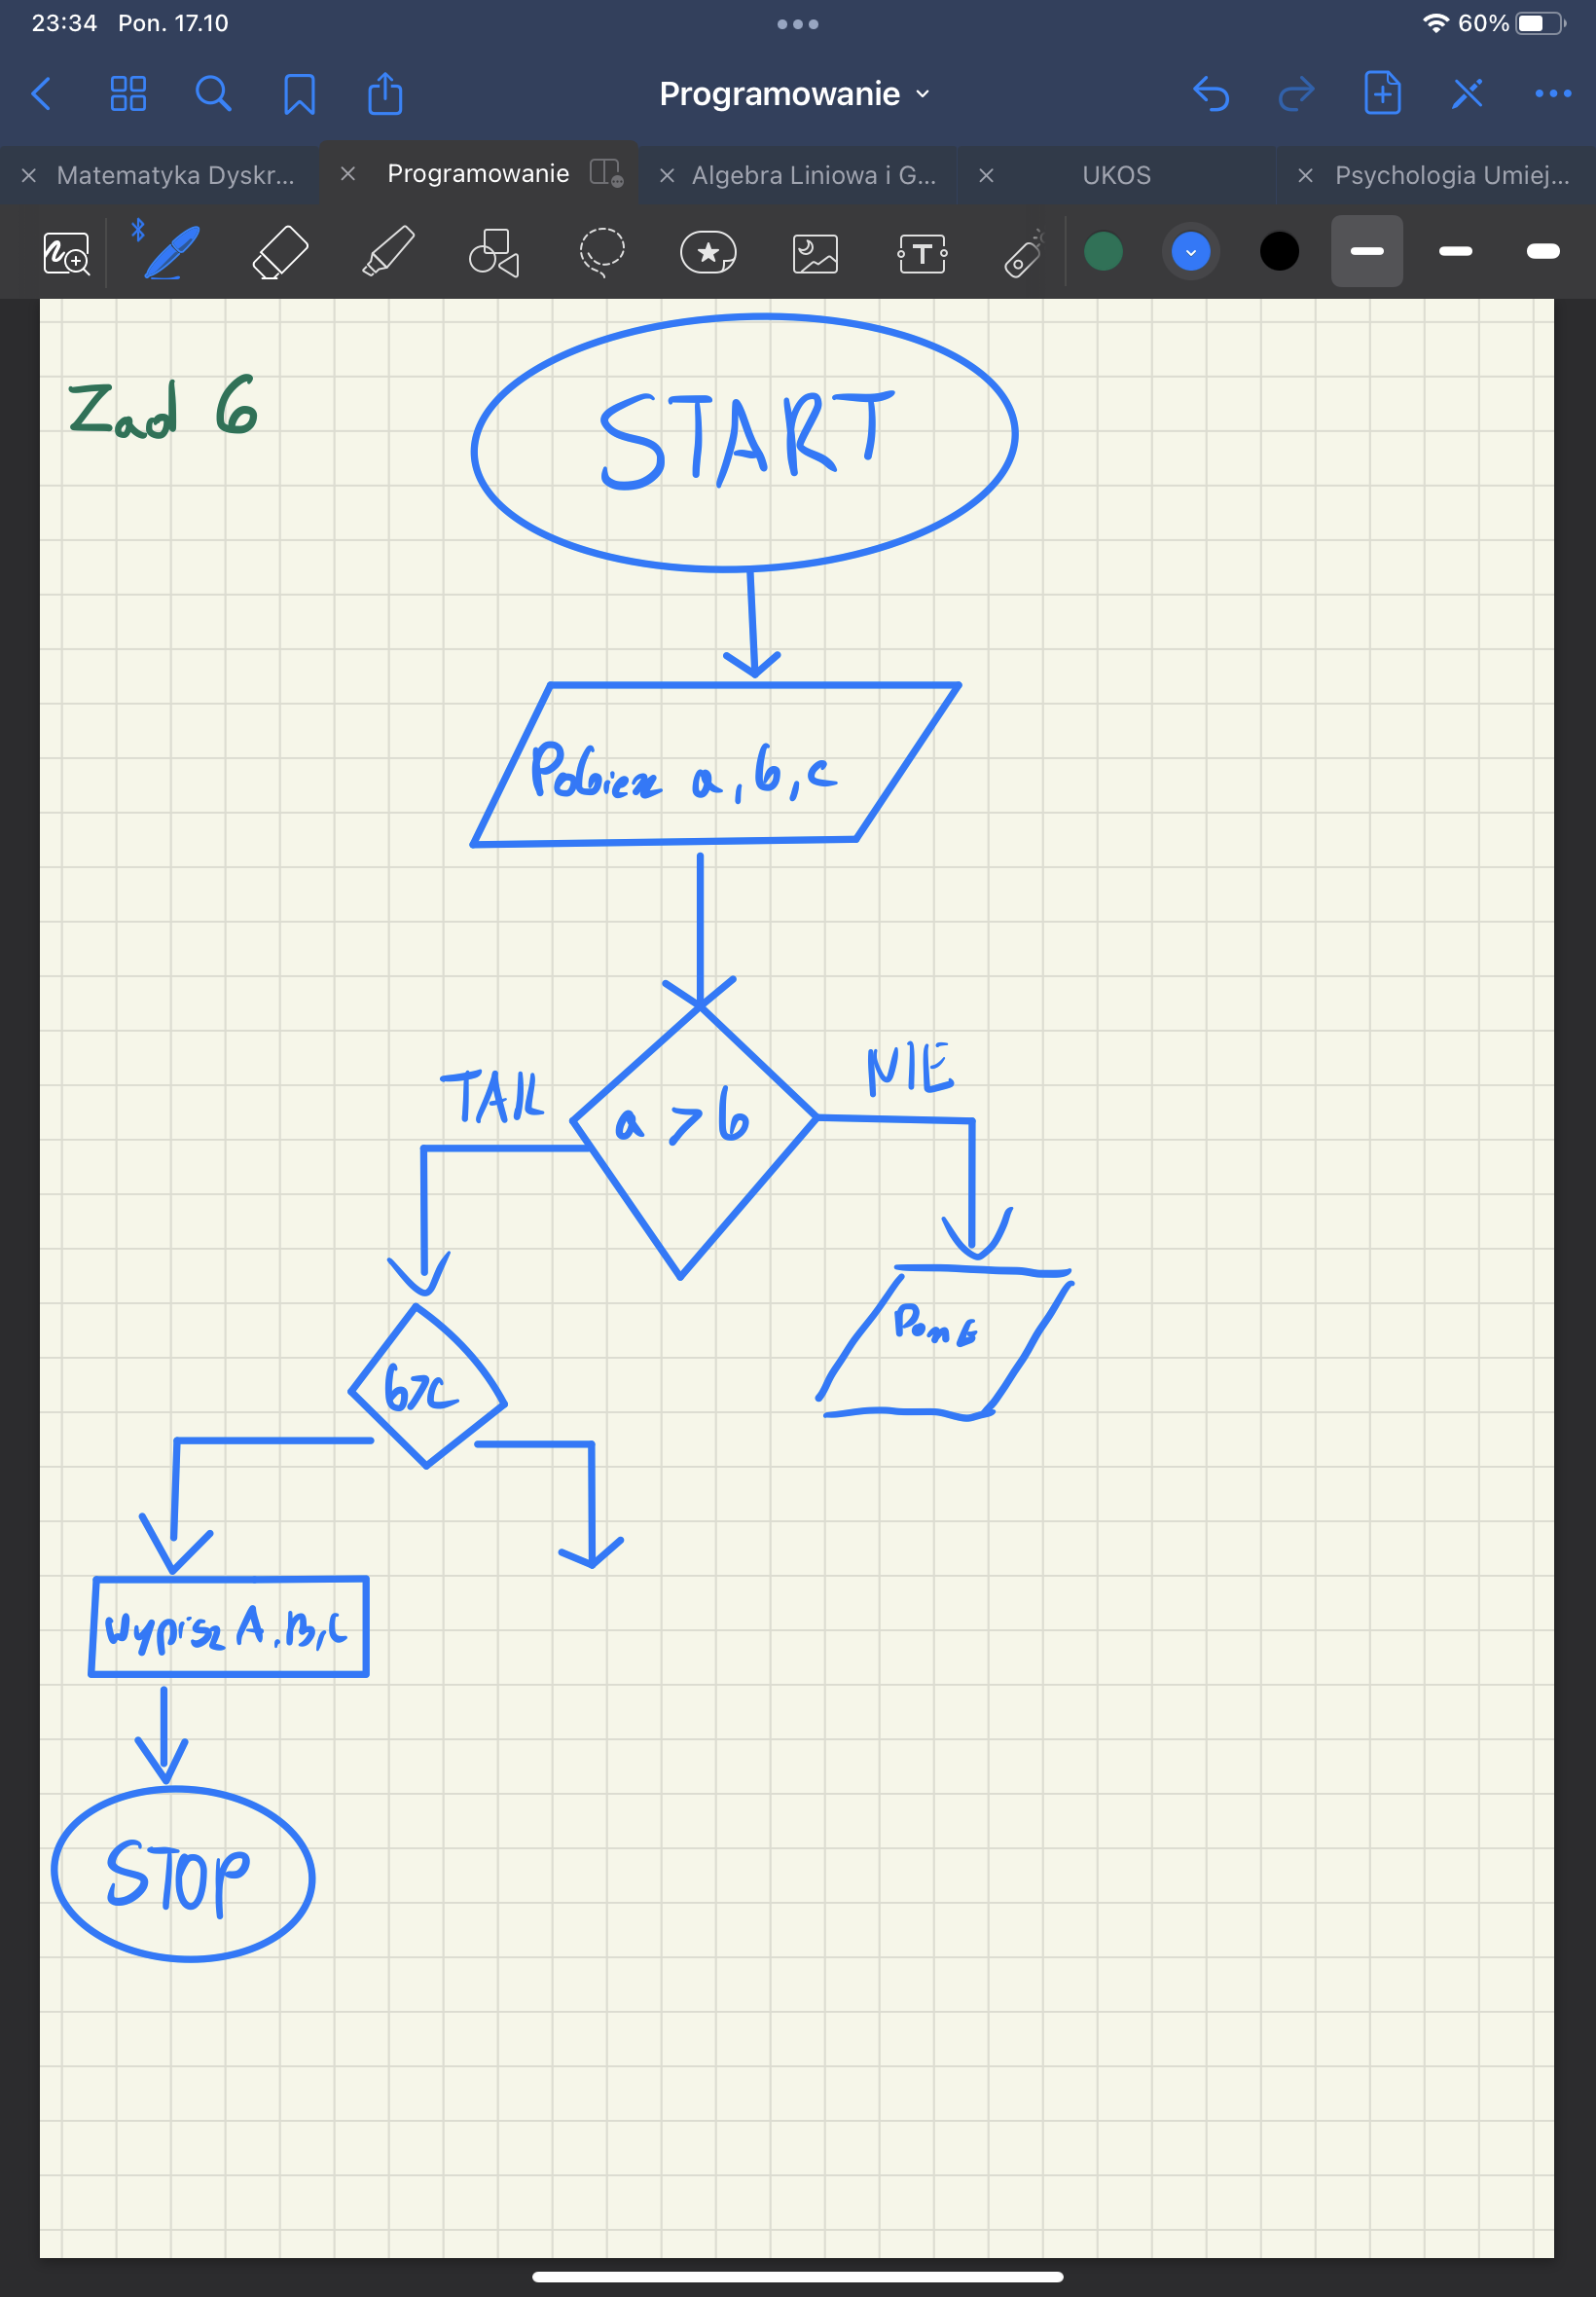 23:34 Pon. 17.10 60%
Programowanie
Matematyka Dyskr... Programowanie Algebra Liniowa i G... UKOS Psychologia Umiej...
T
Zad 6
START
Pobierz a, b, c
TAK NIE
a > b
b>c
wypisz A, B, C
STOP